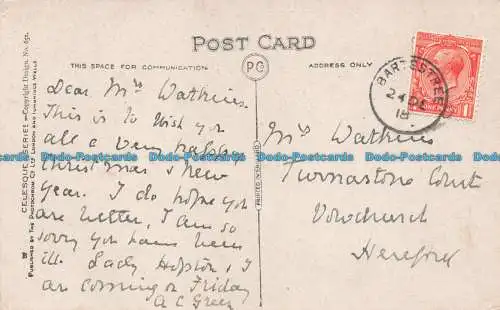 POST CARD
THIS SPACE FOR COMMUNICATION
ADDRESS ONLY
PC
CELESQUE SERIES — Copyright Design. No. 691.
PUBLISHED BY THE PHOTOCHROM CO. LTD LONDON AND TUNBRIDGE WELLS
PRINTED IN
BARTESTREE
24 DE
18
1
Dear Mrs Watkins
This is to wish you
all a very happy
Christmas & New
Year. I do hope you
are better, I am so
sorry you have been
ill. Lady Hopton & I
are coming on Friday
A C Green
Mrs Watkins
Turnastone Court
Vowchurch
Hereford
bidStart
Postcards